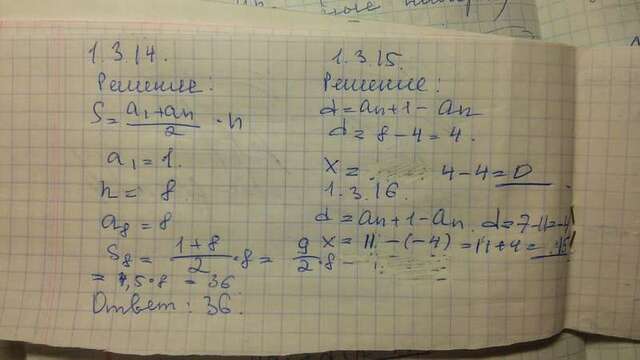 1.3.14.
Решение:
S = (a₁ + aₙ)/2 · n
a₁ = 1.
n = 8
a₈ = 8
S₈ = (1+8)/2 · 8 = 9/2 · 8 =
= 4,5 · 8 = 36
Ответ: 36.
1.3.15.
Решение:
d = aₙ+1 - aₙ
d = 8 - 4 = 4.
x = 4 - 4 = 0
1.3.16.
d = aₙ+1 - aₙ. d = 7 - 11 = -4
x = 11 - (-4) = 11 + 4 = 15